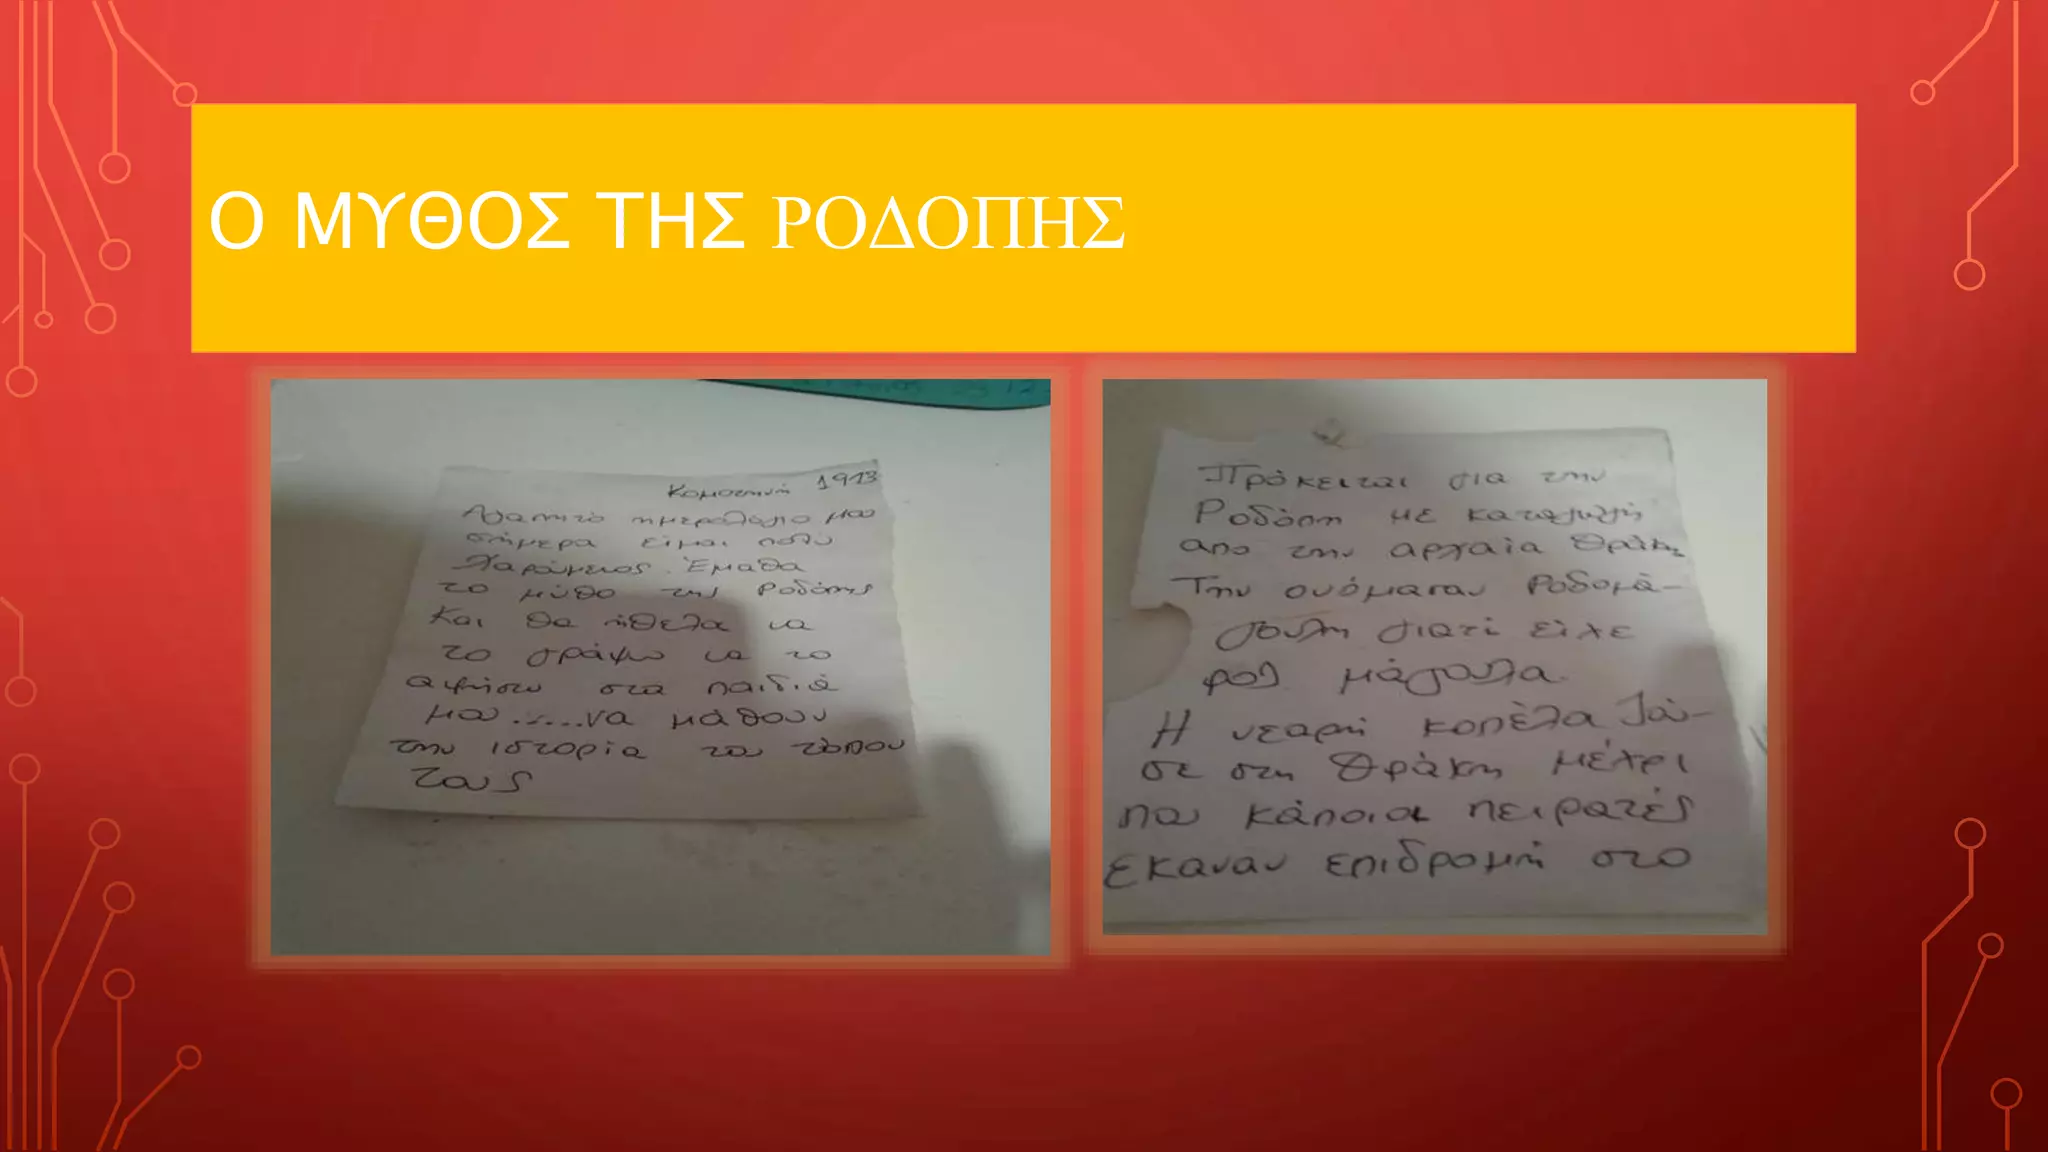 Ο ΜΥΘΟΣ ΤΗΣ ΡΟΔΟΠΗΣ
Κομοτηνή 1913
Αγαπητό ημερολόγιο μου
σήμερα είμαι πολύ
χαρούμενος. Έμαθα
το μύθο της Ροδόπης
Και θα ήθελα να
το γράψω να το
αφήσω στα παιδιά
μου.....να μάθουν
την ιστορία του τόπου
τους
Πρόκειται για την
Ροδόπη με καταγωγή
απο την αρχαία Θράκη
Την ονόμασαν Ροδομά-
γουλη γιατί είχε
ροζ μάγουλα.
Η νεαρή κοπέλα ζού-
σε στη Θράκη μέχρι
που κάποιοι πειρατές
έκαναν επιδρομή στο